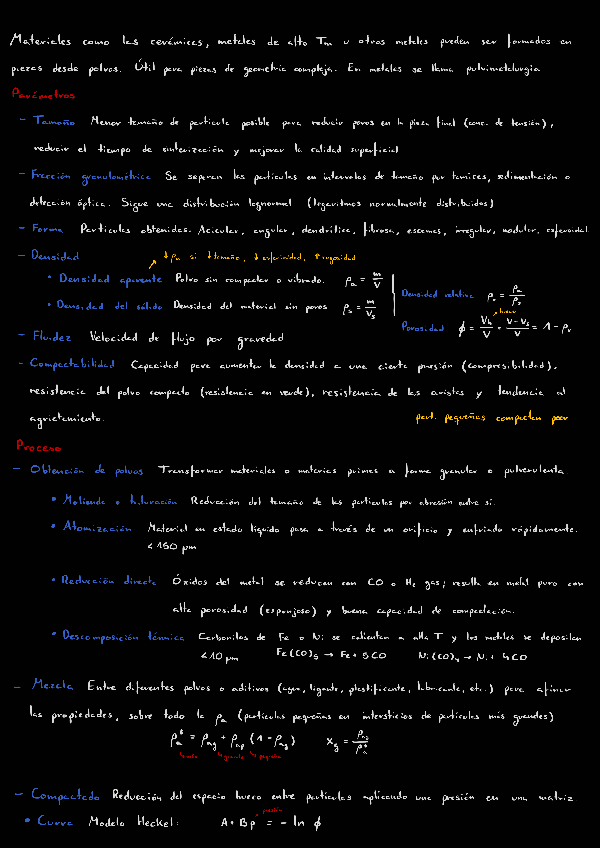 Materiales como las cerámicas, metales de alto Tm u otros metales pueden ser formados en
piezas desde polvos. Útil para piezas de geometría compleja. En metales se llama pulvimetalurgia
Parámetros
- Tamaño Menor tamaño de partícula posible para reducir poros en la pieza final (conc. de tensión),
reducir el tiempo de sinterización y mejorar la calidad superficial
- Fracción granulométrica Se separan las partículas en intervalos de tamaño por tamices, sedimentación o
detección óptica. Sigue una distribución lognormal (logaritmos normalmente distribuidos)
- Forma Partículas obtenidas. Acicular, angular, dendrítica, fibrosa, escamas, irregular, nodular, esferoidal
- Densidad ↓ρa si ↓tamaño, ↓esfericidad, ↑rugosidad
• Densidad aparente Polvo sin compactar o vibrado. ρa = m/V
• Densidad del sólido Densidad del material sin poros ρs = m/Vs
Densidad relativa ρr = ρa/ρs
hueco
Porosidad ϕ = Vh/V = V-Vs/V = 1 - ρr
- Fluidez Velocidad de flujo por gravedad
- Compactabilidad Capacidad para aumentar la densidad a una cierta presión (compresibilidad),
resistencia del polvo compacto (resistencia en verde), resistencia de las aristas y tendencia al
agrietamiento. part. pequeñas compactan peor
Proceso
- Obtención de polvos Transformar materiales o materias primas a forma granular o pulverulenta
• Molienda o trituración Reducción del tamaño de las partículas por abrasión entre sí.
• Atomización Material en estado líquido pasa a través de un orificio y enfriado rápidamente.
<150 μm
• Reducción directa Óxidos del metal se reducen con CO o H2 gas; resulta en metal puro con
alta porosidad (esponjoso) y buena capacidad de compactación.
• Descomposición térmica Carbonilos de Fe o Ni se calientan a alta T y los metales se depositan
<10 μm Fe(CO)5 → Fe + 5CO Ni(CO)4 → Ni + 4CO
- Mezcla Entre diferentes polvos o aditivos (agua, ligante, plastificante, lubricante, etc.) para afinar
las propiedades, sobre todo la ρa (partículas pequeñas en intersticios de partículas más grandes)
ρa* = ρag + ρap (1 - ρag) xg = ρag/ρa*
grande pequeña
- Compactado Reducción del espacio hueco entre partículas aplicando una presión en una matriz
presión
• Curva Modelo Heckel: A + Bp = - ln ϕ